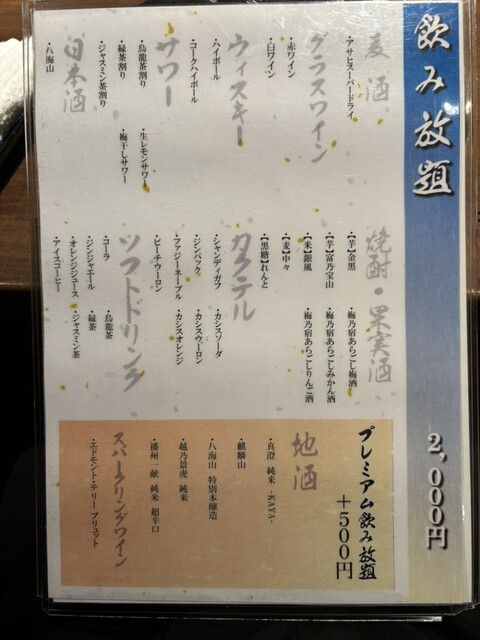 飲み放題
2,000円
麦酒
・アサヒスーパードライ
グラスワイン
・赤ワイン
・白ワイン
ウィスキー
・ハイボール
・コークハイボール
サワー
・烏龍茶割り
・生レモンサワー
・緑茶割り
・梅干しサワー
・ジャスミン茶割り
日本酒
・八海山
焼酎・果実酒
・【芋】金黒
・梅乃宿あらごし梅酒
・【芋】富乃宝山
・梅乃宿あらごしみかん酒
・【米】銀風
・梅乃宿あらごしりんご酒
・【麦】中々
・【黒糖】れんと
カクテル
・シャンディガフ
・カシスソーダ
・ジンバック
・カシスウーロン
・ファジーネーブル
・カシスオレンジ
・ピーチウーロン
ソフトドリンク
・コーラ
・烏龍茶
・ジンジャエール
・緑茶
・オレンジジュース
・ジャスミン茶
・アイスコーヒー
プレミアム飲み放題
+500円
地酒
・真澄 純米 -KAYA-
・麒麟山
・八海山 特別本醸造
・越乃景虎 純米
・播州一献 純米 超辛口
スパークリングワイン
・エドモント・テリー ブリュット